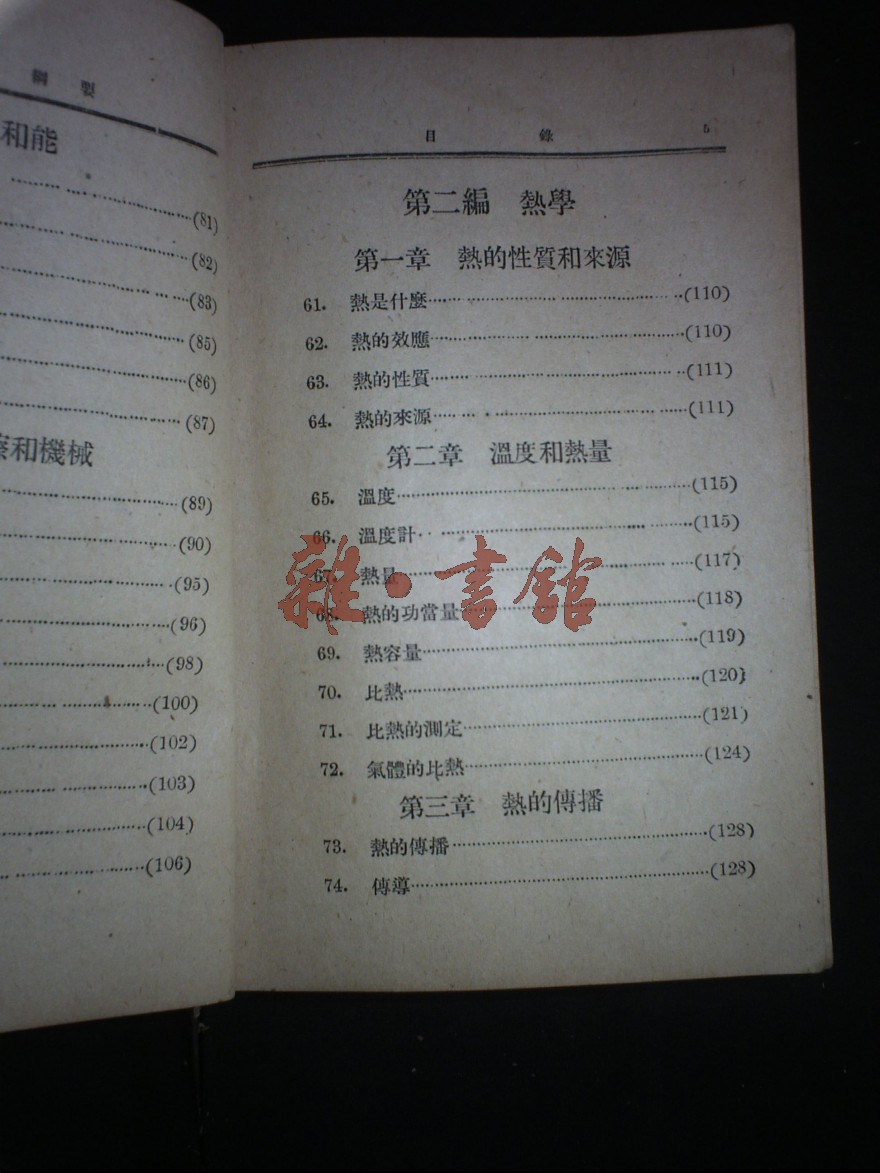 綱 要
和能
(81)
(82)
(83)
(85)
(86)
(87)
和機械
(89)
(90)
(95)
(96)
(98)
(100)
(102)
(103)
(104)
(106)
目 錄 5
第二編 熱學
第一章 熱的性質和來源
61. 熱是什麼……(110)
62. 熱的效應……(110)
63. 熱的性質……(111)
64. 熱的來源……(111)
第二章 溫度和熱量
65. 溫度……(115)
66. 溫度計……(115)
67. 熱量……(117)
68. 熱的功當量……(118)
69. 熱容量……(119)
70. 比熱……(120)
71. 比熱的測定……(121)
72. 氣體的比熱……(124)
第三章 熱的傳播
73. 熱的傳播……(128)
74. 傳導……(128)
雜·書館